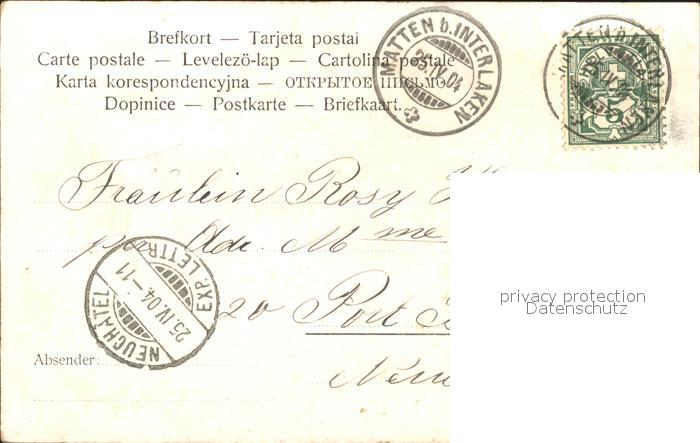 Brefkort — Tarjeta postai
Carte postale — Levelező-lap — Cartolina postale
Karta korespondencyjna — ОТКРЫТОЕ ПИСЬМО
Dopinice — Postkarte — Briefkaart.
MATTEN b. INTERLAKEN
25.IV.04
5
Fräulein Rosy
Adr. Mme
20 Port
NEUCHATEL EXP. LETTR.
25.IV.04.-11
Absender:
privacy protection
Datenschutz